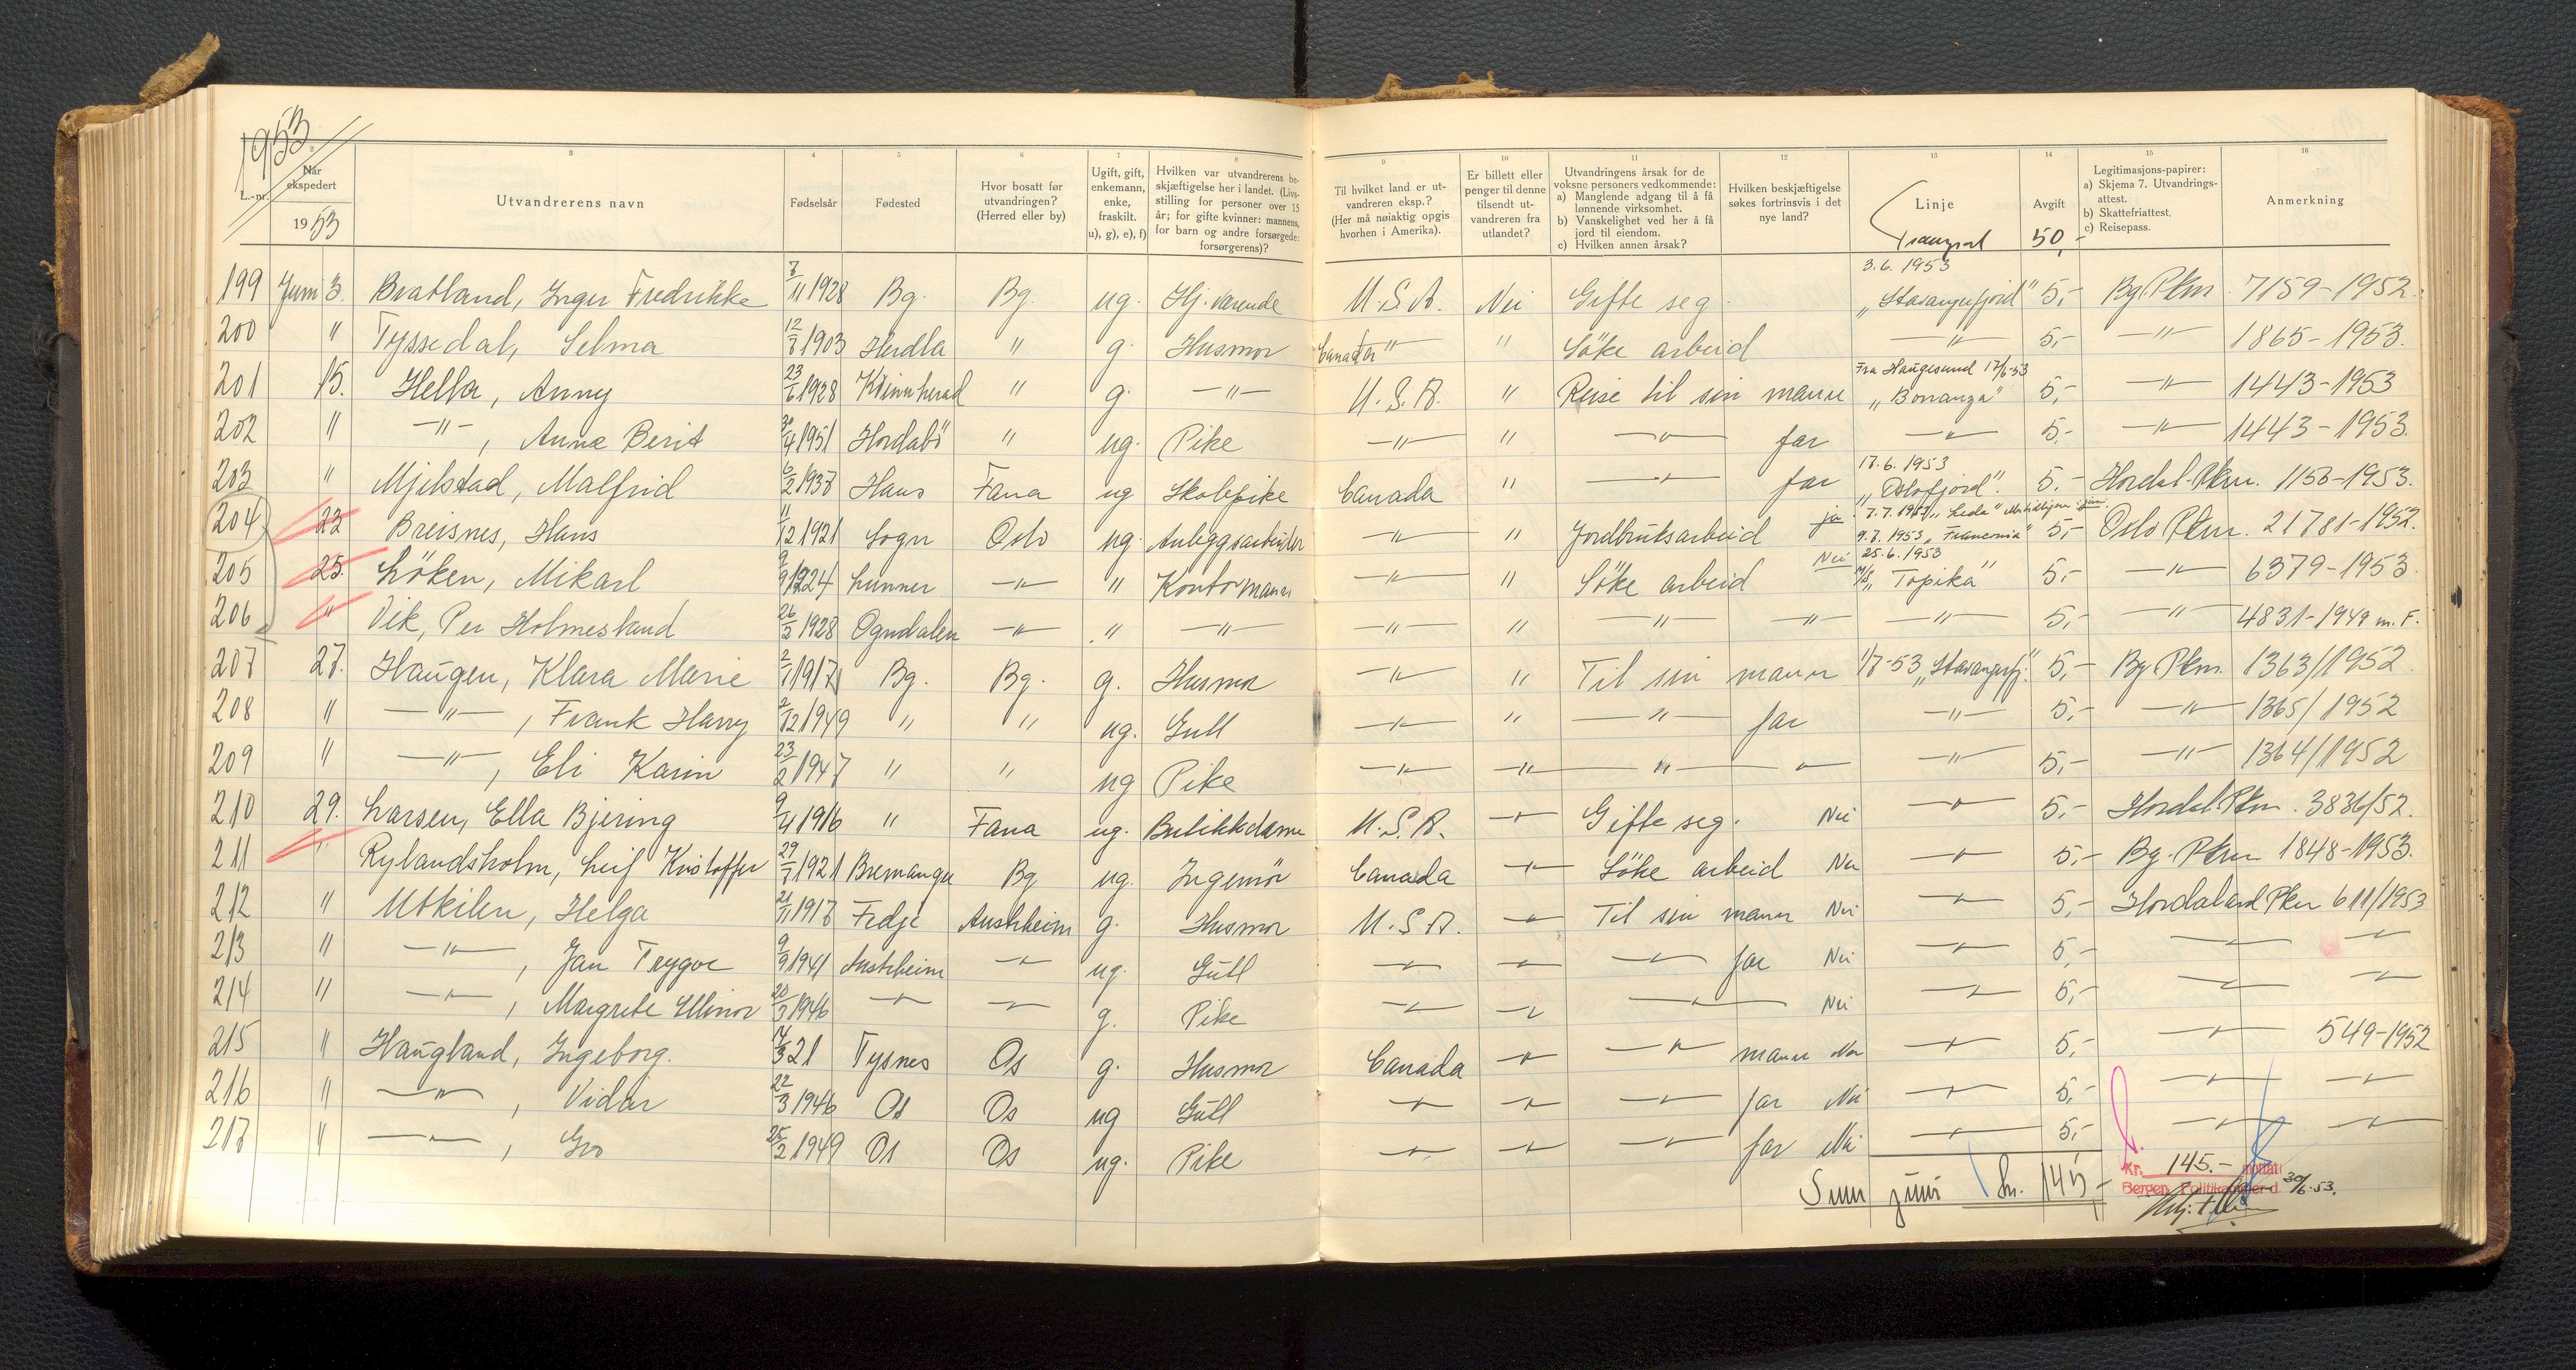 1953
3 4 5 6 7 8 9 10 11 12 13 14 15 16
L.-nr. Når ekspedert 1953
Utvandrerens navn
Fødselsår
Fødested
Hvor bosatt før utvandringen? (Herred eller by)
Ugift, gift, enkemann, enke, fraskilt. u), g), e), f)
Hvilken var utvandrerens beskjæftigelse her i landet. (Livsstilling for personer over 15 år; for gifte kvinner: mannens, for barn og andre forsørgede: forsørgerens)?
Til hvilket land er utvandreren eksp.? (Her må nøiaktig opgis hvorhen i Amerika).
Er billett eller penger til denne tilsendt utvandreren fra utlandet?
Utvandringens årsak for de voksne personers vedkommende: a) Manglende adgang til å få lønnende virksomhet. b) Vanskelighet ved her å få jord til eiendom. c) Hvilken annen årsak?
Hvilken beskjæftigelse søkes fortrinsvis i det nye land?
Linje
Avgift
Legitimasjons-papirer: a) Skjema 7. Utvandringsattest. b) Skattefriattest. c) Reisepass.
Anmerkning
Transport 50,-
199 Juni 3. Bratland, Inger Fredrikke 7/11 1928 Bg. Bg. ug. Hj. værende U.S.A. Nei Gifte seg. 3.6.1953 "Stavangerfjord" 5,- Bg. Pkm. 7159-1952.
200 " Tyssedal, Selma 12/8 1903 Herdla " g. Husmor Canada " Söke arbeid —"— 5,- —"— 1865-1953.
201 15. Hella, Anny 23/6 1928 Kvinnherad " g. —"— U.S.A. " Reise til sin mann Fra Haugesund 17/6-53 "Bonanza" 5,- —"— 1443-1953
202 " —"—, Anne Berit 4 1951 Hordabö " ug. Pike —"— " —"— far —"— 5,- —"— 1443-1953.
203 " Mjelstad, Malfrid 6/2 1937 Haus Fana ug Skolepike Canada " —"— far 17.6.1953 "Oslofjord". 5.- Hordal. Pkm. 1156-1953.
204 22 Breisnes, Hans 11/12 1921 Sogn Oslo ug. Anleggsarbeider —"— " Jordbruksarbeid ja 7.7.1953 "Leda" 9.7.1953 "Franconia" 5,- Oslo Pkm. 21781-1952.
205 25. Löken, Mikael 9/9 1924 Lunner —"— " Kontormann —"— " Söke arbeid Nei 25.6.1953 M/S "Topika" 5,- —"— 6379-1953
206 " Vik, Per Holmesland 26/2 1928 Ogndalen —"— " —"— —"— " —"— —"— —"— 5,- —"— 4831-1949 m.F.
207 27. Haugen, Klara Marie 2/1 1917 Bg. Bg. g. Husmor —"— " Til sin mann 1/7-53 "Stavangerfj." 5,- Bg. Pkm. 1363/1952.
208 " —"—, Frank Harry 2/12 1949 " " ug. Gutt —"— " —"— far —"— 5,- —"— 1365/1952
209 " —"—, Eli Karin 23/2 1947 " " ug Pike —"— —"— —"— —"— —"— 5,- —"— 1364/1952
210 29. Larsen, Ella Bjering 9/4 1916 " Fana ug. Butikkdame U.S.A. —"— Gifte seg. Nei —"— 5,- Hordal. Pkm. 3836/52.
211 " Rylandsholm, Leif Kristoffer 29/7 1921 Bremanger Bg ug. Ingeniör Canada —"— Söke arbeid Nei —"— 5,- Bg. Pkm 1848-1953.
212 " Utkilen, Helga 21/11 1917 Fedje Austrheim g. Husmor U.S.A. —"— Til sin mann Nei —"— 5,- Hordaland Pkm 611/1953
213 " —"—, Jan Trygve 9/9 1941 Austrheim —"— ug. Gutt —"— —"— —"— far Nei —"— 5,- —"— —"—
214 " —"—, Margrete Ellinor 20/3 1946 —"— —"— g. Pike —"— —"— —"— Nei —"— 5,- —"— —"—
215 " Haugland, Ingeborg. 14/3 21 Tysnes Os g. Husmor Canada —"— —"— mann Nei —"— 5,- —"— 549-1952
216 " —"—, Vidar 22/3 1946 Os Os ug Gutt —"— —"— —"— far Nei —"— 5,- —"— —"—
217 " —"—, Gro 25/2 1949 Os Os ug. Pike —"— —"— —"— far Nei —"— 5,- —"— —"—
Sum juni kr. 145,-
Kr. 145.- mottatt
Bergen Politikammer d. 30/6-53.